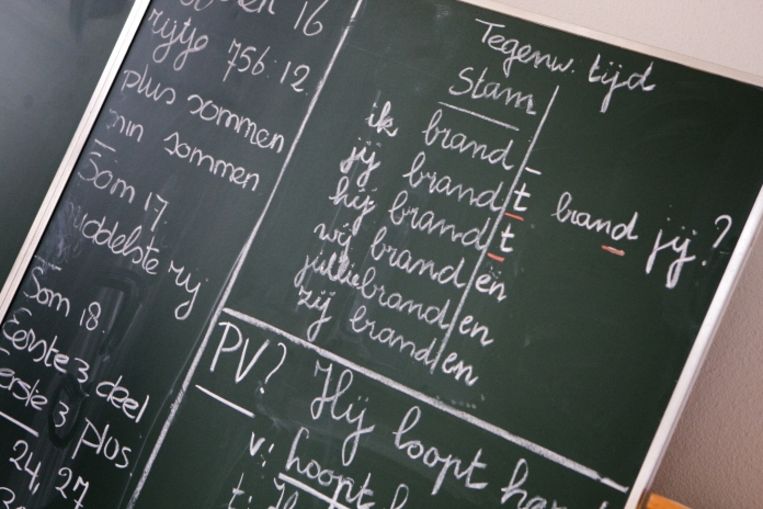 16
rijtje 756:12
plus sommen
min sommen
Som 17.
middelste rij
Som 18.
Eerste 3 deel
eerste 3 plus
24, 27
Tegenw. tijd
Stam
ik brand -
jij brand t brand jij?
hij brand t
wij brand en
jullie brand en
zij brand en
PV? Hij loopt
v: hoopt
t: